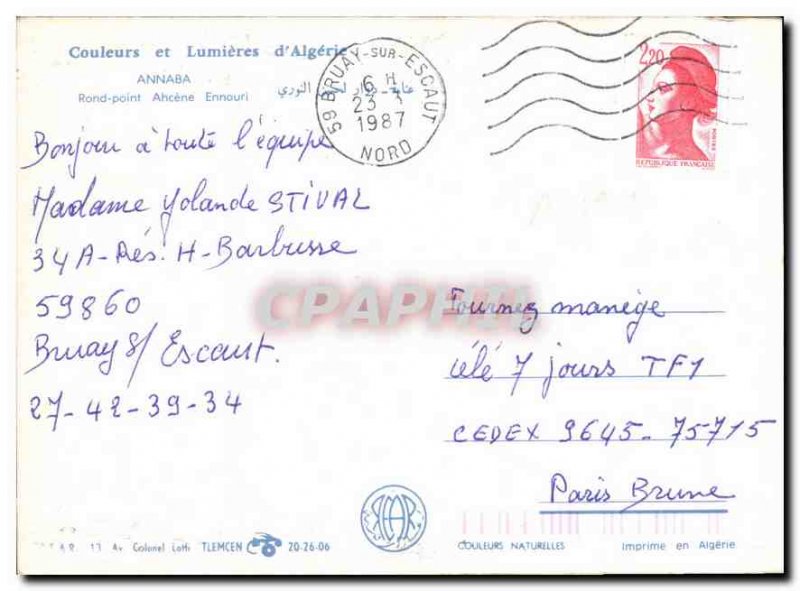 Couleurs et Lumières d'Algérie
ANNABA
Rond-point Ahcène Ennouri
59 BRUAY-SUR-ESCAUT
6 H
23 - 3
1987
NORD
2,20
REPUBLIQUE FRANÇAISE
Bonjour à toute l'équipe
Madame Yolande STIVAL
34 A - Rés. H - Barbusse
59860
Bruay s/ Escaut.
27-42-39-34
CPAPHIL
Tournez manège
télé 7 jours TF1
CEDEX 9645-75715
Paris Brune
13 Av Colonel Lotfi TLEMCEN 20-26-06
COULEURS NATURELLES
Imprimé en Algérie